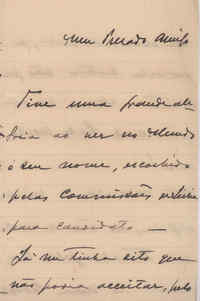 Meu Presado Amigo
Tive uma grande ale-
gria ao ver no Mundo
o seu nome, escolhido
pelas commissões
para candidato —
Já me tinha dito que
não podia acceitar, pelo